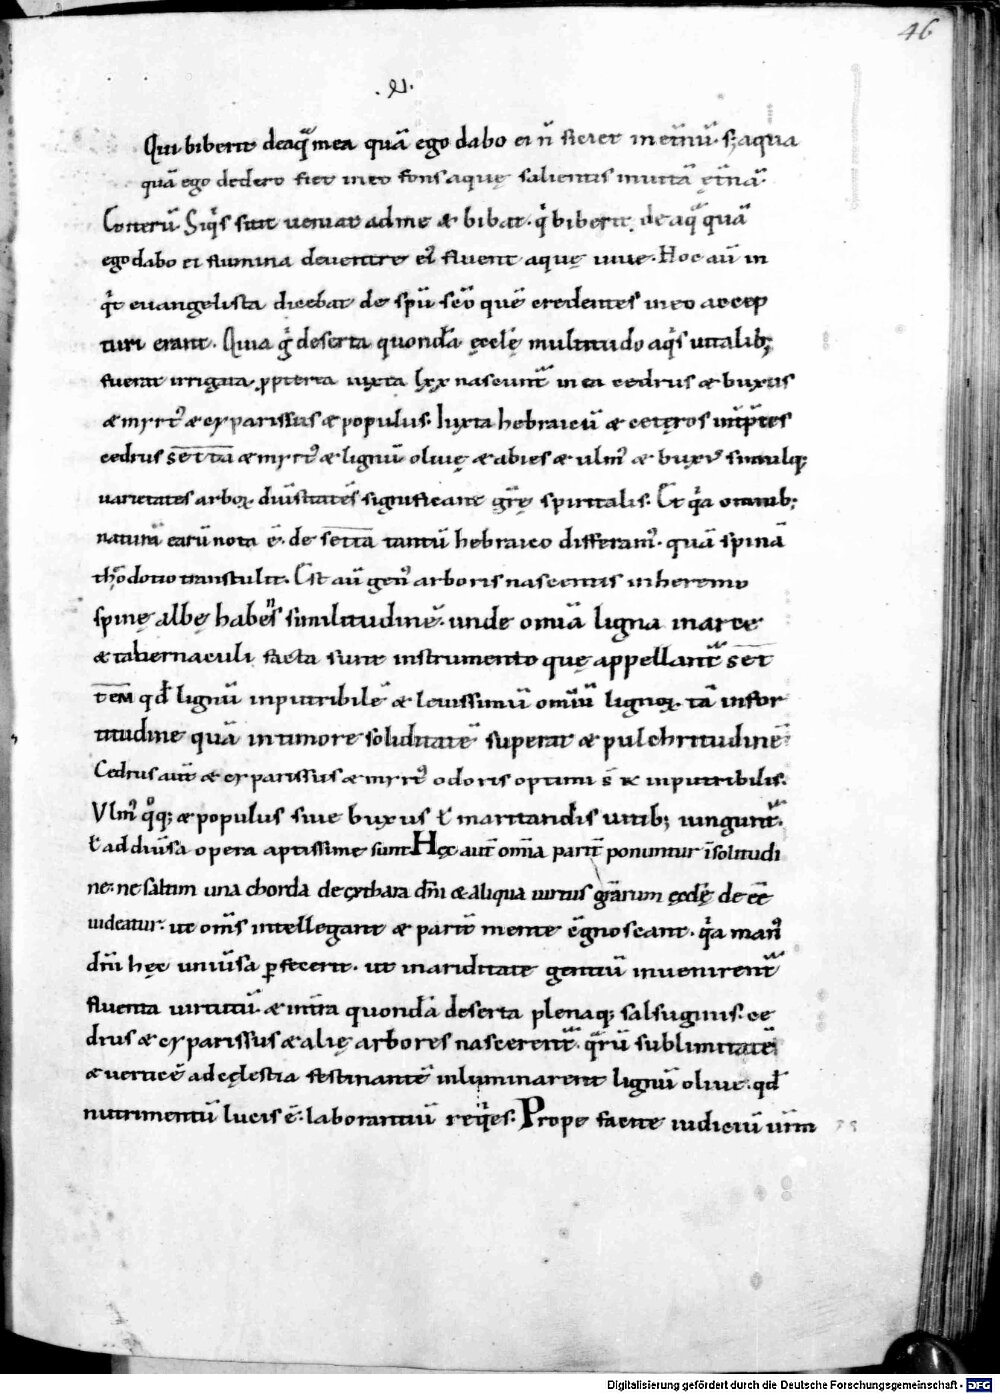 46
.XI.
Qui biberit de aq̅ mea quā ego dabo ei n̄ sitiet in et̄nū. sꝫ aqua
quā ego dedero fiet in eo fons aquę salientis in vitā ęt̄nā.
Siq̄s sitit veniat ad me & bibat. q̄ biberit de aq̅ quā
ego dabo ei flumina de ventre ei᾽ fluent aquę vivę. Hoc aū in
q̄t evangelista dicebat de spū sc̄o quē credentes in eo accep
turi erant. Quia g̊ deserta quondā ęcclę multitudo aq̄s vitalibꝫ
fuerat irrigata ꝓpterea iuxta lxx nascunt̄ in ea cedrus & buxus
& myrt᾽ & cyparissus & populus. Iuxta hebraicū & cęteros int̄p̄tes
cedrus settā & myrt᾽ & lignū olivę & abies & ulm᾽ & bux᾽ simulqꝫ
varietates arborꝝ divsitates significant gr̄ę spiritalis. Et q̄a omnibꝫ
natura earū nota ē. de settā tantū hebraico differam᾽. quā spinā
theodotio transtulit. Est aū gen᾽ arboris nascentis in heremo
spinę albę habens similitudinē. unde omīa ligna in arce
& tabernaculi facta sunt instrumento quę appellant̄ set
tem qd̄ lignū inputribilē & levissimū omiū lignorꝝ. tā in for
titudine quā in timore soliditatē superat & pulchritudinē
Cedrus aut̄ & cyparissus & myrt᾽ odoris optimi s̄ & inputribilis.
Ulm᾽ qq̊ꝫ & populus sive buxus ł maritandis vitibꝫ iungunt̄.
ł ad divsa opera aptissime sunt Hęc aut̄ omīa partī ponuntur ī solitudi
ne. ne saltim una chorda de cythara dn̄i & aliqua virtus gr̄arum ęcclę de eē
videatur. ut om̄s intellegant & partī mente c̄gnoscant. q̄a man᾽
dn̄i hęc univsa ꝑfecerit. ut in ariditate gentiū invenirent̄
fluenta virtutū. & int̄ra quondā deserta plenaqꝫ salsuginis. ce
drus & cyparissus & alię arbores nascerent̄. q̄rū sublimitatē
& verticē ad cęlestia festinantē inluminarent lignū olivę. qd̄
nutrimentū lucis ē. laborantiū req̄es. Prope facite iudiciū vr̄m
Digitalisierung gefördert durch die Deutsche Forschungsgemeinschaft - DFG